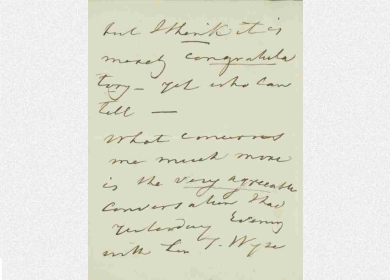 but I think it is
merely congratula
tory – yet who can
tell —
What concerns
me much more
is the very agreeable
conversation I had
yesterday Evening
with T. Wyse